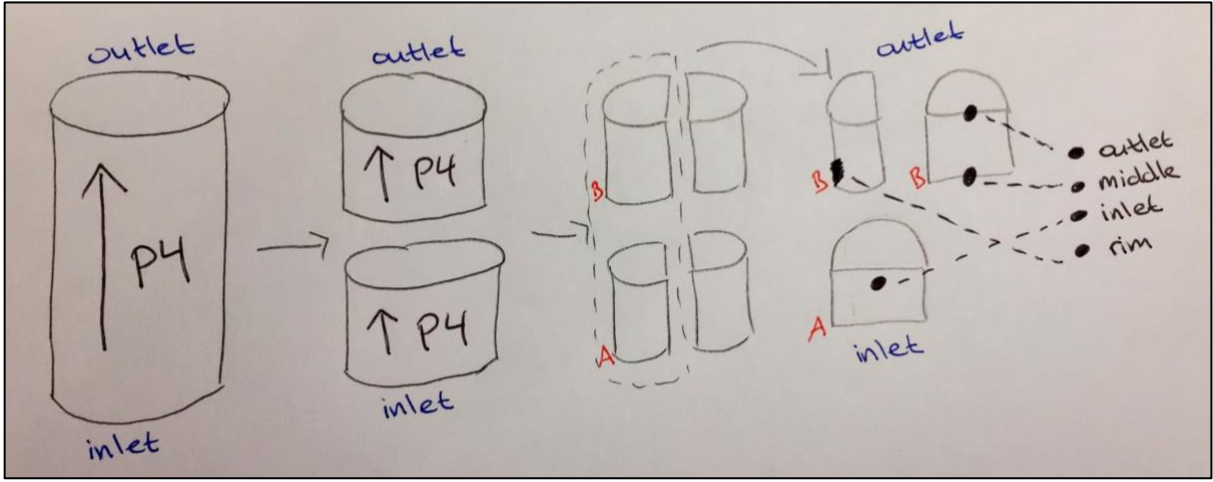 outlet
P4
inlet
outlet
P4
P4
inlet
B
A
outlet
B
B
A
inlet
outlet
middle
inlet
rim